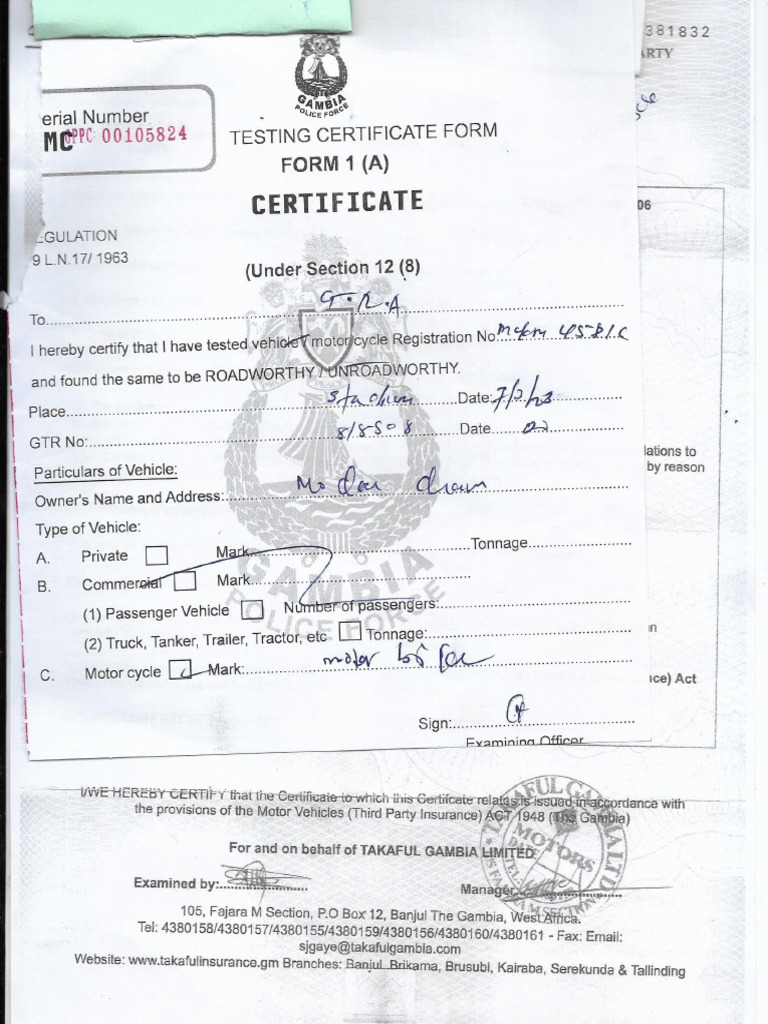 381832
ARTY
GAMBIA
POLICE FORCE
erial Number
MC PPC: 00105824
TESTING CERTIFICATE FORM
FORM 1 (A)
CERTIFICATE
06
EGULATION
9 L.N.17/ 1963
(Under Section 12 (8)
To G.R.A
I hereby certify that I have tested vehicle / motor cycle Registration No
and found the same to be ROADWORTHY / UNROADWORTHY.
Place Date:
GTR No: 818508 Date
lations to
by reason
Particulars of Vehicle:
Owner's Name and Address:
Type of Vehicle:
A. Private Mark Tonnage
B. Commercial Mark
(1) Passenger Vehicle Number of passengers:
(2) Truck, Tanker, Trailer, Tractor, etc Tonnage:
n
C. Motor cycle Mark: motor
nce) Act
Sign:
Examining Officer
GAMBIA
POLICE FORCE
I/WE HEREBY CERTIFY that the Certificate to which this Certifcate relates is issued in accordance with
the provisions of the Motor Vehicles (Third Party Insurance) ACT 1948 (The Gambia)
For and on behalf of TAKAFUL GAMBIA LIMITED
Examined by: Manager
TAKAFUL GAMBIA LTD
MOTORS
DATE
TEL:
105, Fajara M Section, P.O Box 12, Banjul The Gambia, West Africa.
Tel: 4380158/4380157/4380155/4380159/4380156/4380160/4380161 - Fax: Email:
sjgaye@takafulgambia.com
Website: www.takafulinsurance.gm Branches: Banjul, Brikama, Brusubi, Kairaba, Serekunda & Tallinding